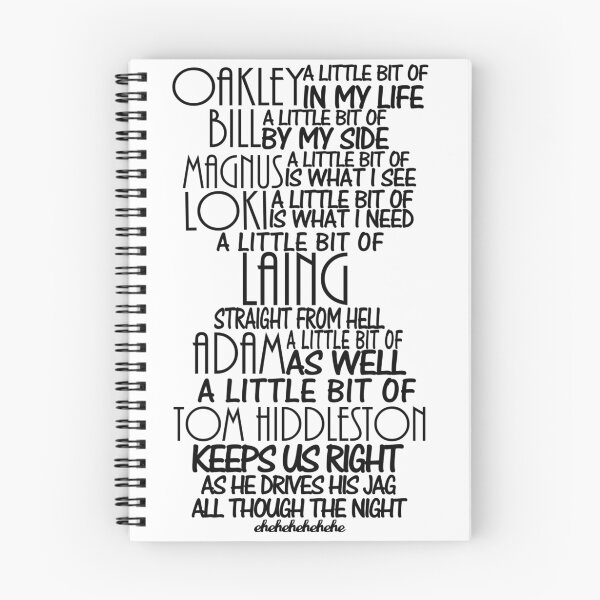 A LITTLE BIT OF
OAKLEY IN MY LIFE
A LITTLE BIT OF
BILL BY MY SIDE
A LITTLE BIT OF
MAGNUS IS WHAT I SEE
A LITTLE BIT OF
LOKI IS WHAT I NEED
A LITTLE BIT OF
LAING
STRAIGHT FROM HELL
A LITTLE BIT OF
ADAM AS WELL
A LITTLE BIT OF
TOM HIDDLESTON
KEEPS US RIGHT
AS HE DRIVES HIS JAG
ALL THOUGH THE NIGHT
ehehehehehehe